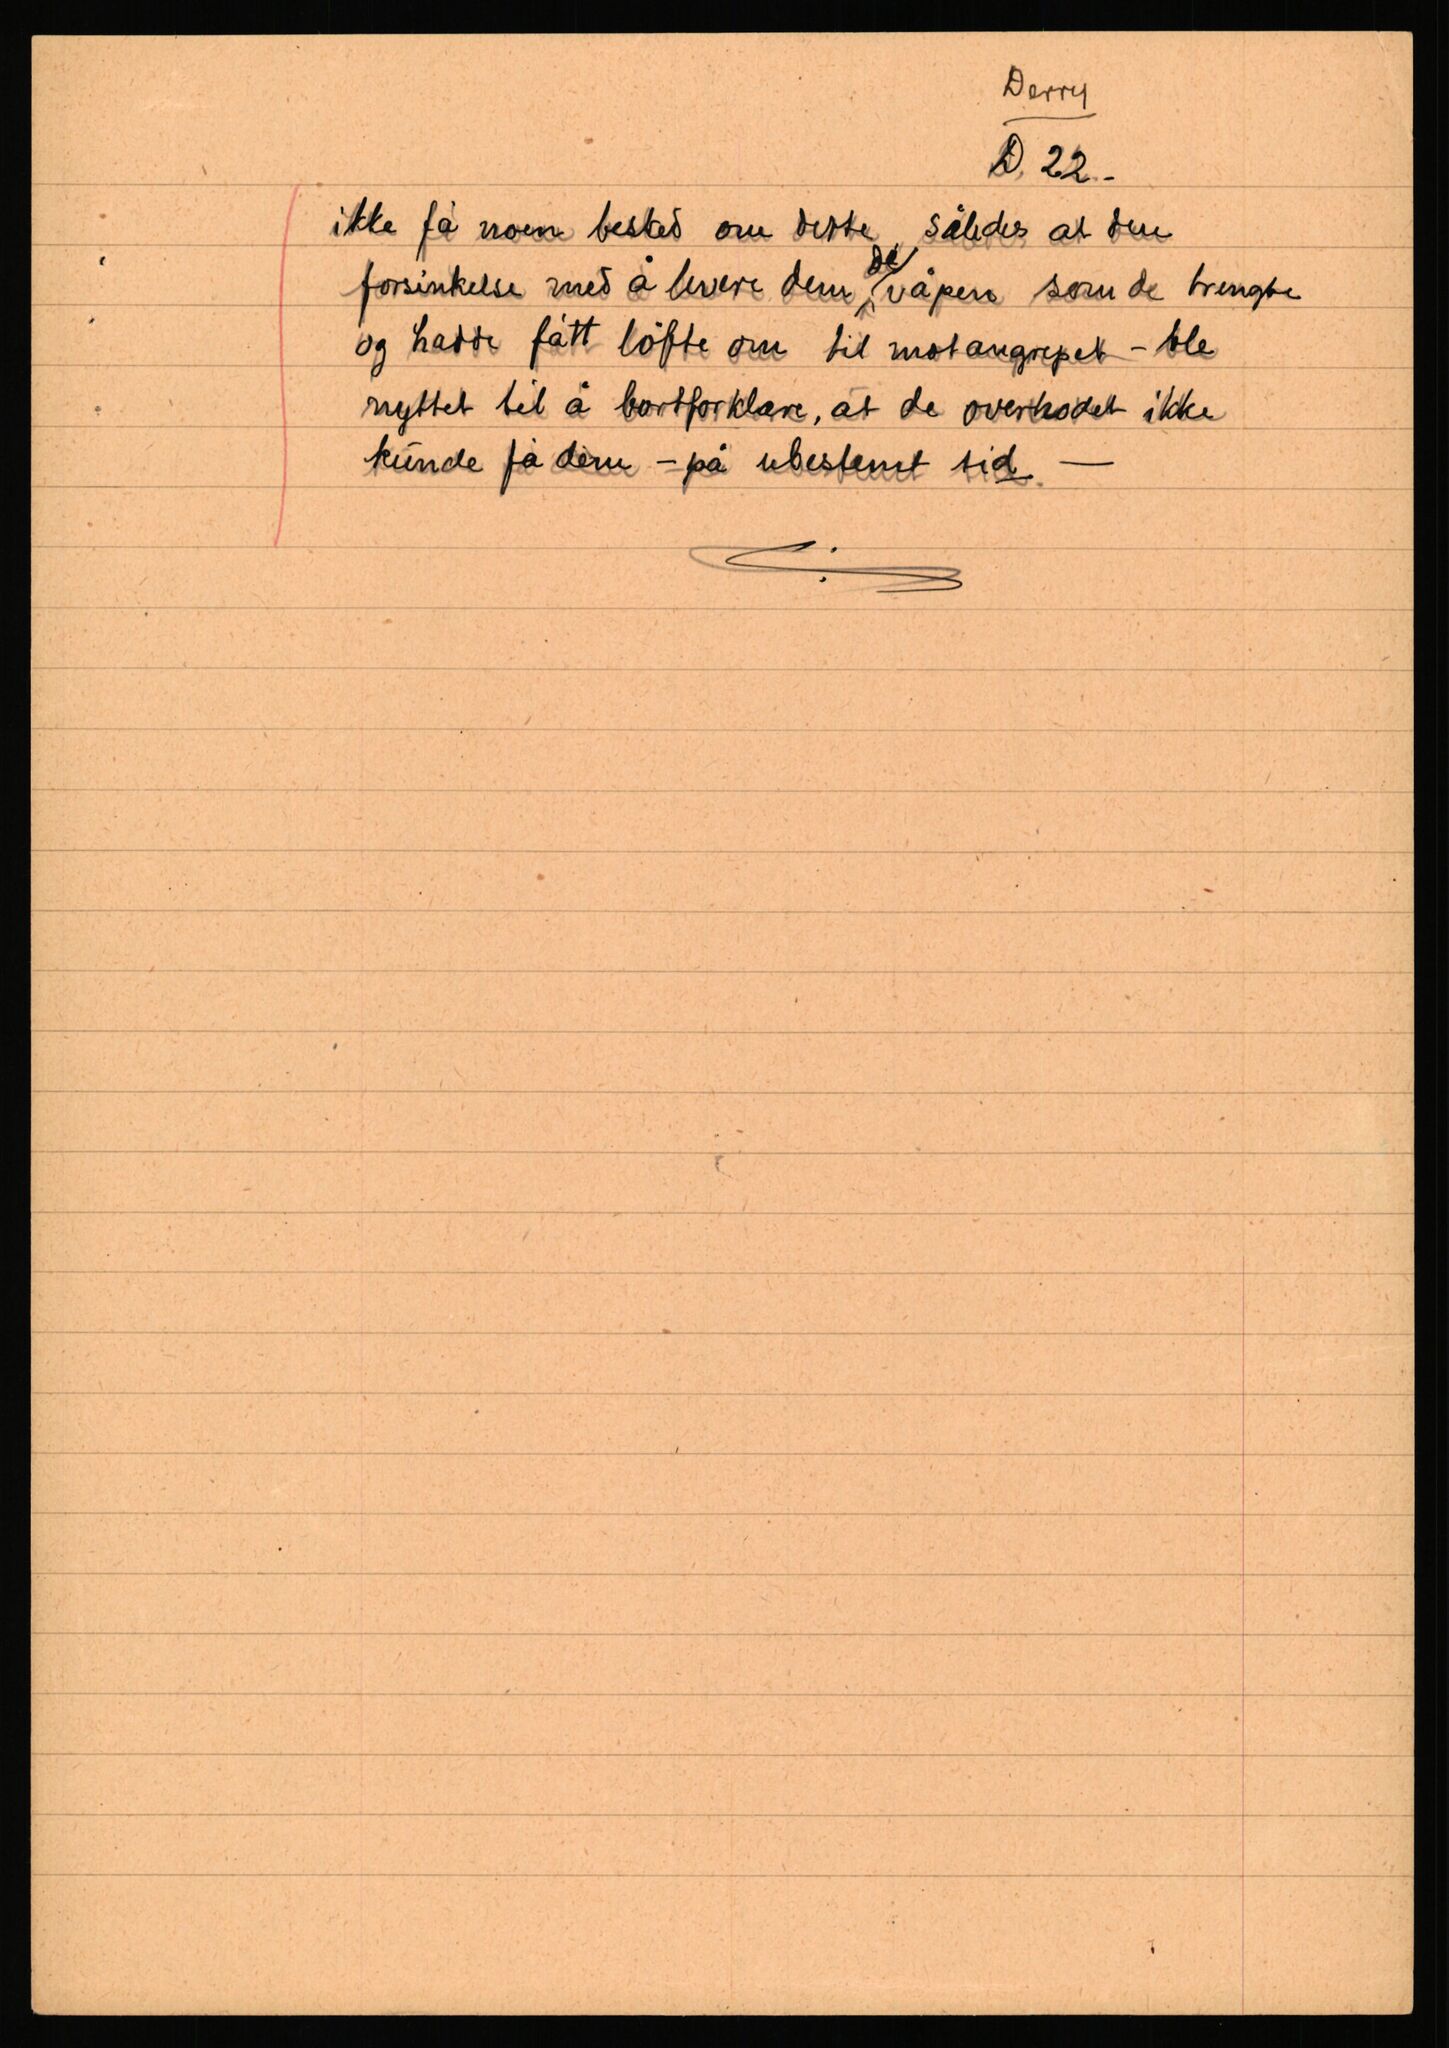 Derry
D. 22.-
ikke få noen besked om dette, således at den
forsinkelse med å levere dem de våpen som de trengte
og hadde fått löfte om til motangrepet - ble
nyttet til å bortforklare, at de overhodet ikke
kunde få dem - på ubestemt tid. —